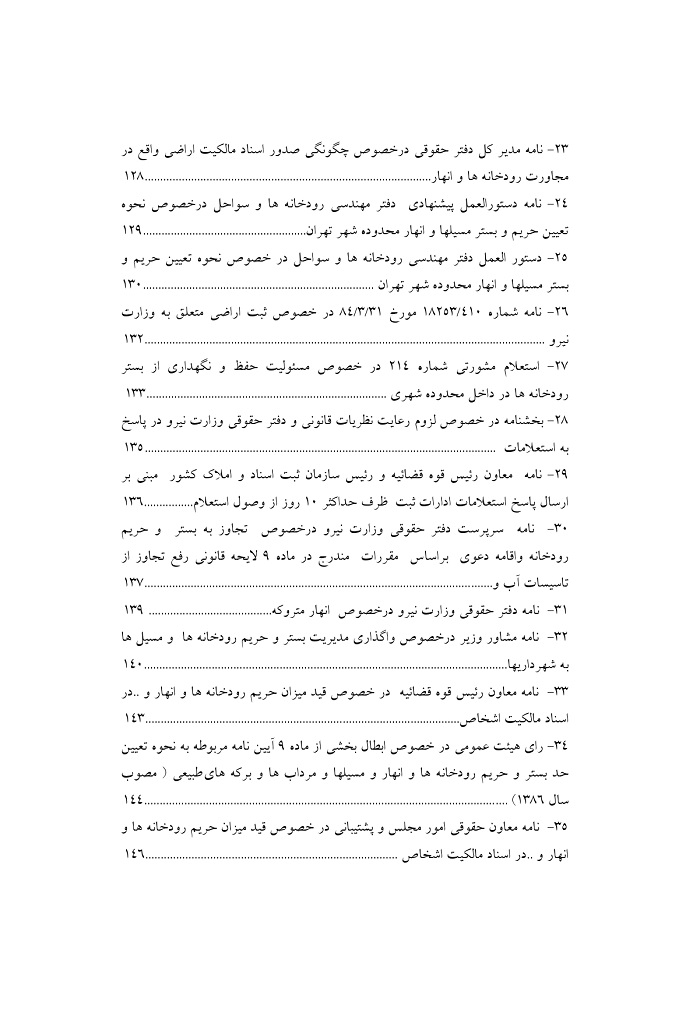 ٢٣- نامه مدیر کل دفتر حقوقی درخصوص چگونگی صدور اسناد مالکیت اراضی واقع در
مجاورت رودخانه ها و انهار..........................................................................................١٢٨
٢٤- نامه دستورالعمل پیشنهادی دفتر مهندسی رودخانه ها و سواحل درخصوص نحوه
تعیین حریم و بستر مسیلها و انهار محدوده شهر تهران.....................................................١٢٩
٢٥- دستور العمل دفتر مهندسی رودخانه ها و سواحل در خصوص نحوه تعیین حریم و
بستر مسیلها و انهار محدوده شهر تهران ...........................................................................١٣٠
٢٦- نامه شماره ١٨٢٥٣/٤١٠ مورخ ٨٤/٣/٣١ در خصوص ثبت اراضی متعلق به وزارت
نیرو ...................................................................................................................................١٣٢
٢٧- استعلام مشورتی شماره ٢١٤ در خصوص مسئولیت حفظ و نگهداری از بستر
رودخانه ها در داخل محدوده شهری ..............................................................................١٣٣
٢٨- بخشنامه در خصوص لزوم رعایت نظریات قانونی و دفتر حقوقی وزارت نیرو در پاسخ
به استعلامات ..................................................................................................................١٣٥
٢٩- نامه معاون رئیس قوه قضائیه و رئیس سازمان ثبت اسناد و املاک کشور مبنی بر
ارسال پاسخ استعلامات ادارات ثبت ظرف حداکثر ١٠ روز از وصول استعلام................١٣٦
٣٠- نامه سرپرست دفتر حقوقی وزارت نیرو درخصوص تجاوز به بستر و حریم
رودخانه واقامه دعوی براساس مقررات مندرج در ماده ٩ لایحه قانونی رفع تجاوز از
تاسیسات آب و.................................................................................................................١٣٧
٣١- نامه دفتر حقوقی وزارت نیرو درخصوص انهار متروکه........................................ ١٣٩
٣٢- نامه مشاور وزیر درخصوص واگذاری مدیریت بستر و حریم رودخانه ها و مسیل ها
به شهرداریها......................................................................................................................١٤٠
٣٣- نامه معاون رئیس قوه قضائیه در خصوص قید میزان حریم رودخانه ها و انهار و ..در
اسناد مالکیت اشخاص......................................................................................................١٤٣
٣٤- رای هیئت عمومی در خصوص ابطال بخشی از ماده ٩ آیین نامه مربوطه به نحوه تعیین
حد بستر و حریم رودخانه ها و انهار و مسیلها و مرداب ها و برکه های‌طبیعی ( مصوب
سال ١٣٨٦) ......................................................................................................................١٤٤
٣٥- نامه معاون حقوقی امور مجلس و پشتیبانی در خصوص قید میزان حریم رودخانه ها و
انهار و ..در اسناد مالکیت اشخاص ..................................................................................١٤٦